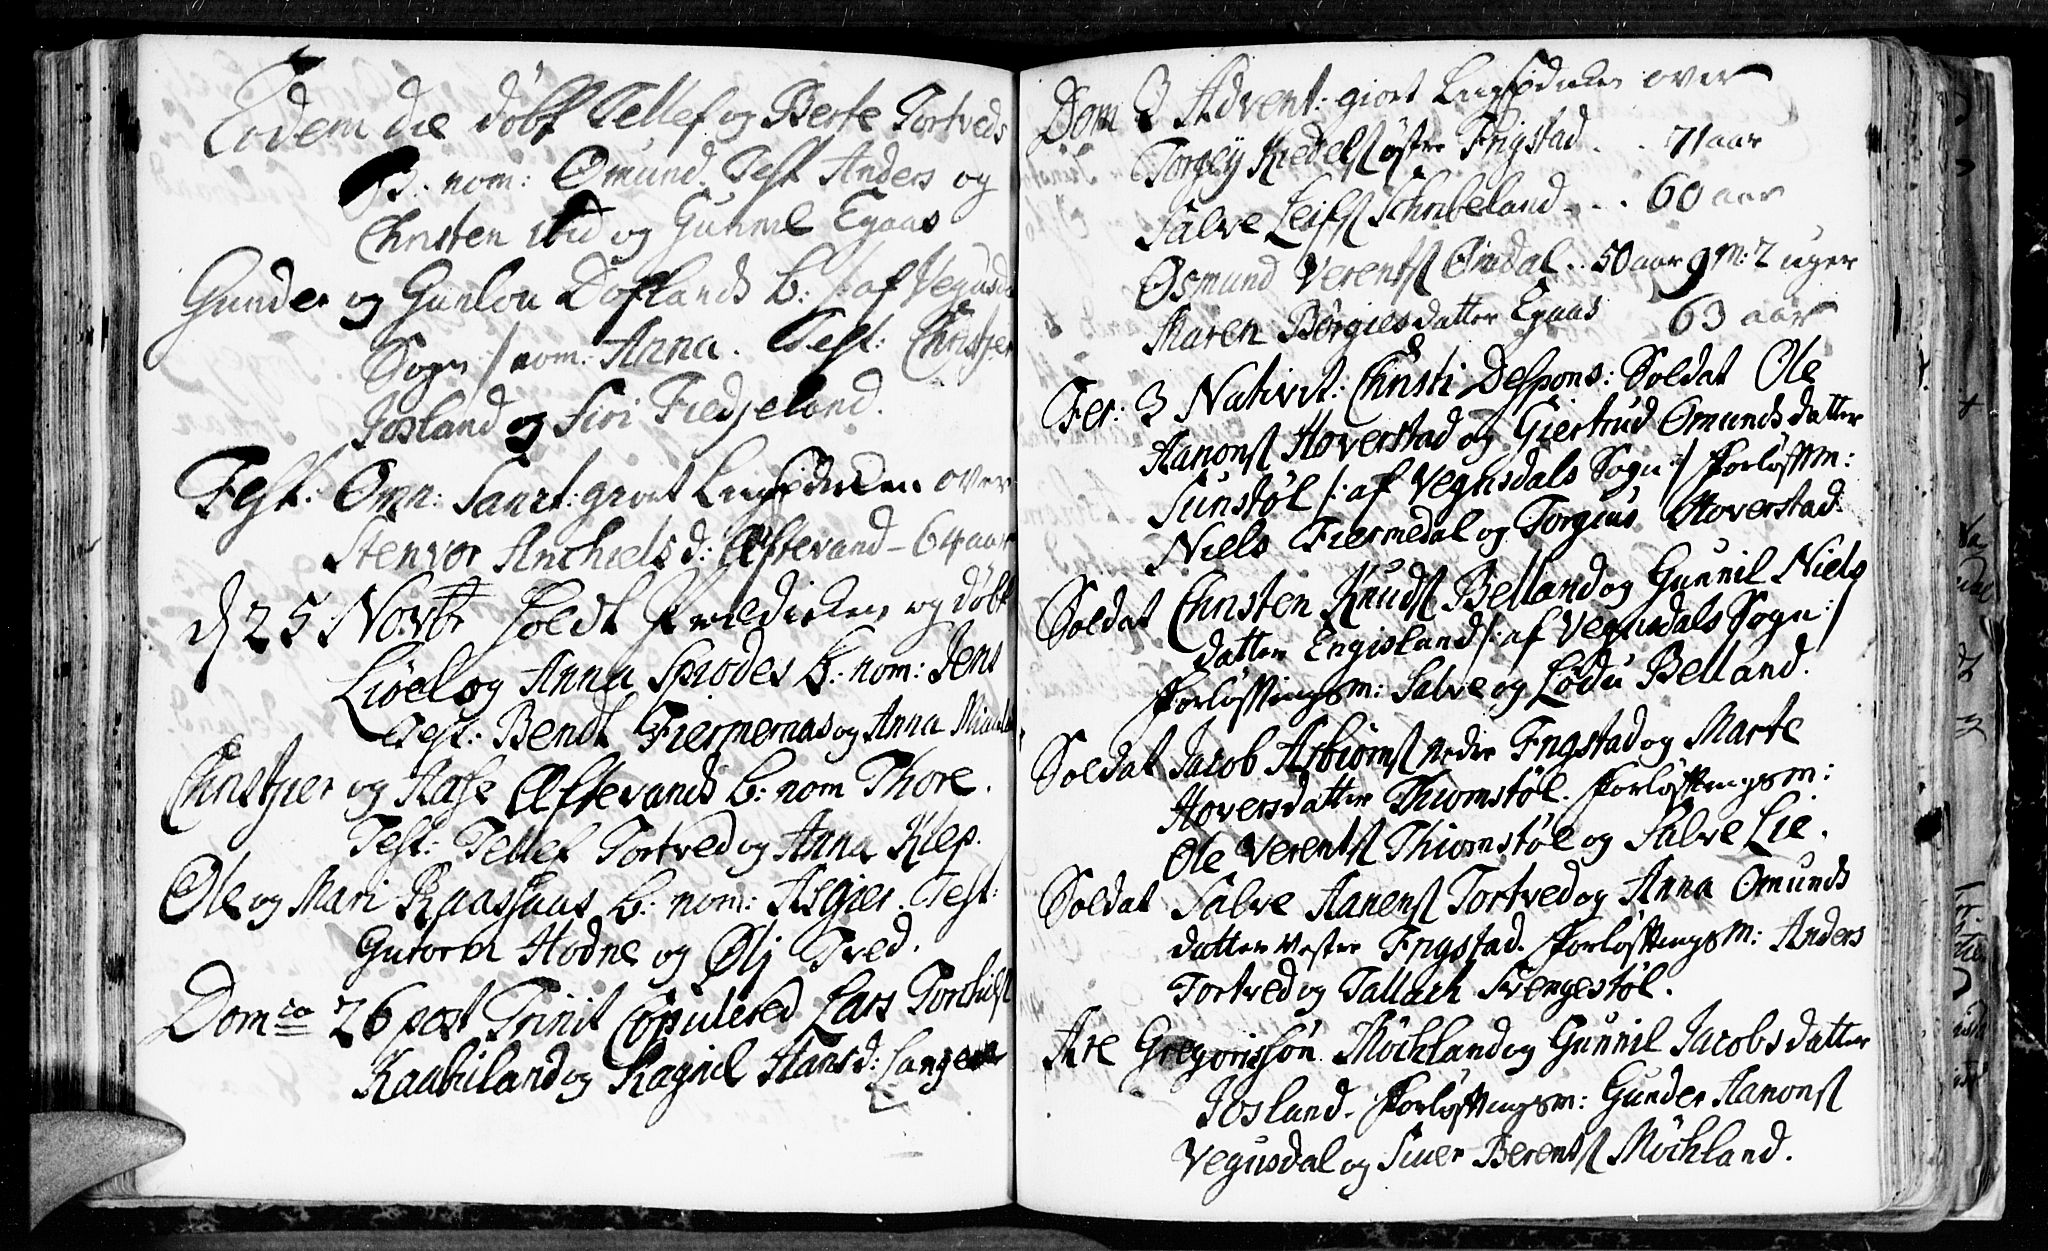 Eodem die døbt Tellef og Berte Tortveds
B: nom: Omund. Test Anders og
Christen ibid og Gunnil Egaas
Gunder og Gunlou Doflands b: /: af Vegusda
Sogn :/ nom: Anna. Test: Christjer
Josland og Siri Fiedjeland.
Fest: Omn: Sanct: giort Liigprædicken over
Stenvor Anchiels d: Eftevand – 64 aar
d 25 Novbr holdt Prædicken og døbt
Liøel og Anna Spiodes b: nom: Jens
Test: Bendt Fiermeraas og Anna
Christjer og Aase Eftevands b: nom Thore.
Test: Tellef Tortved og Anna Klep.
Ole og Mari Raassaas b: nom: Asgier. Test:
Gutorm Hodne og Øli Tved.
Domca 26 post Trinit Copulered Lars Torchilsſ
Kaabuland og Ragnil Hans d: Langerer
Dom 3 Advent: giort Liigprædicken over
Torgey Kiedelsſ østre Frigstad . . 71 aar
Salve Leifsſ Schribeland . . . 60 aar
Osmund Verentsſ Omdal . . 50 aar 9 m: 2 uger
Maren Børgiesdatter Egaas 63 aar
Fer: 3 Nativit: Christi Despons: Soldat Ole
Aanonsſ Hoverstad og Giertrud Omunds datter
Sunstøl /: af Vegusdals Sogn :/ Forløftsm:
Niels Fiermedal og Torgius Hoverstad.
Soldat Christen Knudsſ Belland og Gunnil Niels
datter Engisland /: af Vegusdals Sogn :/
Forløftningsm: Salve og Lødu Belland.
Soldat Jacob Asbiørnsſ nedre Frigstad og Marte
Hoversdatter Thiomstøl. Forløftningsm:
Ole Verentsſ Thiomstøl og Salve Lie.
Soldat Salve Aanensſ Tortved og Anna Omunds
datter vestre Frigstad. Forløftningsm: Anders
Tortved og Tallach Svengestøl.
Are Gregorissøn Mochland og Gunnil Jacobs datter
Josland. Forløftningsm: Gunder Aanonsſ
Vegusdal og Siuer Berentsſ Mochland.